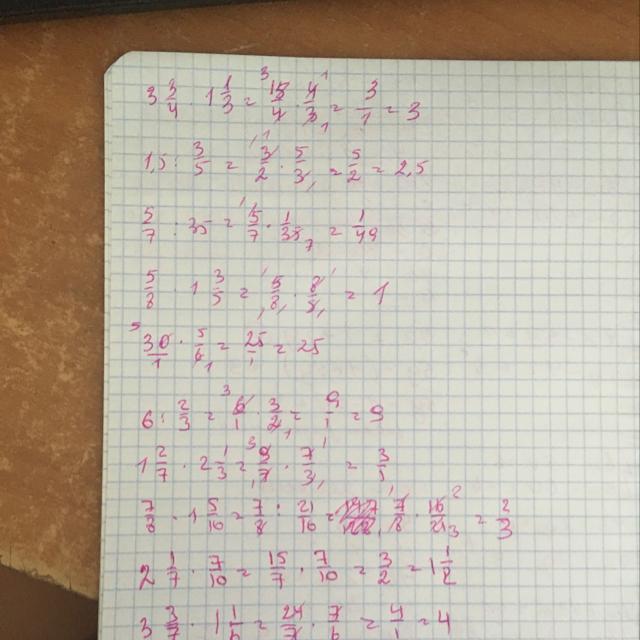 3 3/4 · 1 1/3 = 15/4 · 4/3 = 3/1 = 3
1,5 : 3/5 = 3/2 · 5/3 = 5/2 = 2,5
5/7 : 35 = 5/7 · 1/35 = 1/49
5/8 · 1 3/5 = 5/8 · 8/5 = 1
30/1 · 5/6 = 25/1 = 25
6 : 2/3 = 6/1 · 3/2 = 9/1 = 9
1 2/7 · 2 1/3 = 9/7 · 7/3 = 3/1
7/8 · 1 5/16 = 7/8 : 21/16 = 7/8 · 16/21 = 2/3
2 1/7 · 7/10 = 15/7 · 7/10 = 3/2 = 1 1/2
3 3/7 · 1 1/6 = 24/7 · 7/6 = 4/1 = 4